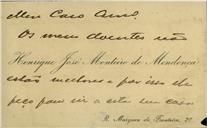 Meu Caro Amº.
Os meus doentes não
Henrique José Monteiro de Mendonça
estão melhores e por isso lhe
peço para vir a esta sua casa
R. Marquez da Fronteira, 27